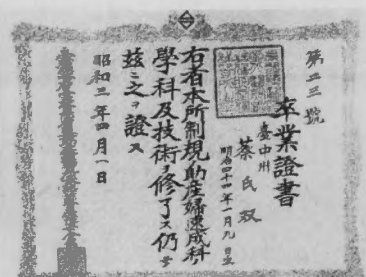 第二三號
卒業證書
臺中州
蔡氏双
明治四十四年一月九日生
右者本所制規助産婦速成科
學科及技術ヲ修了ス仍テ
茲ニ之ヲ證ス
昭和三年四月一日